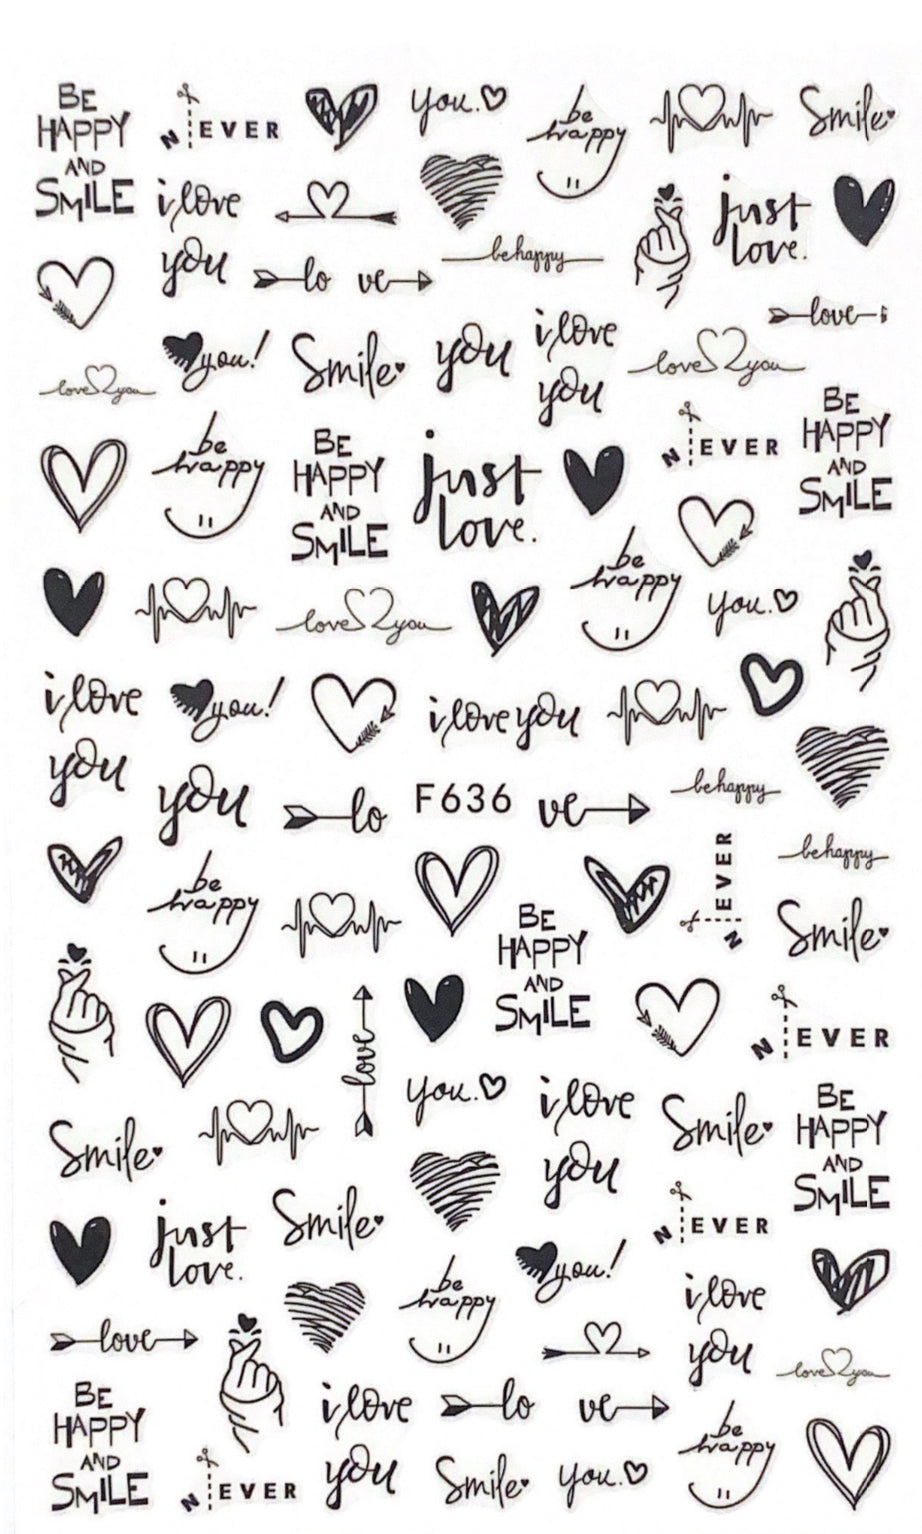 BE
HAPPY
AND
SMILE
NEVER
you.
be
happy
Smile
i love
you
just
love.
lo ve
be happy
love
love you
you!
Smile
you
i love
you
love you
be
happy
BE
HAPPY
AND
SMILE
just
love.
NEVER
BE
HAPPY
AND
SMILE
be
happy
love you
you.
i love
you
you!
i love you
you
lo
F636
ve
be happy
be happy
be
happy
NEVER
BE
HAPPY
AND
SMILE
Smile
love
NEVER
you.
i love
you
Smile
BE
HAPPY
AND
SMILE
Smile
just
love.
Smile
NEVER
you!
be
happy
i love
you
love
love you
BE
HAPPY
AND
SMILE
i love
you
lo ve
be
happy
NEVER
Smile
you.